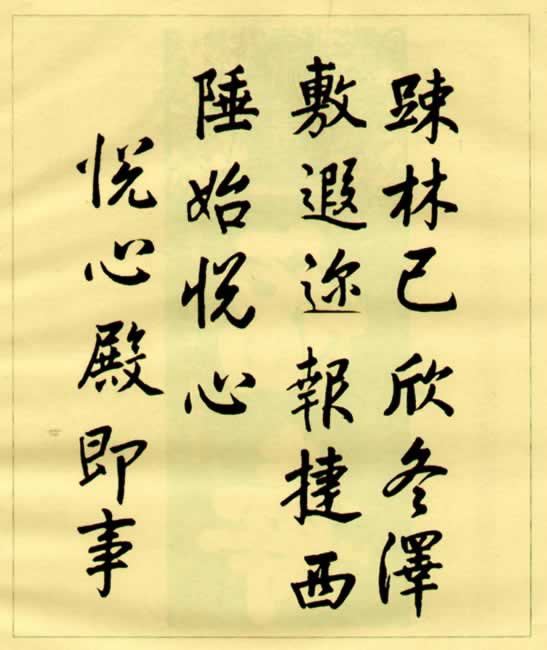 踈林已欣冬澤
敷遐迩報捷西
陲始悦心
悦心殿即事